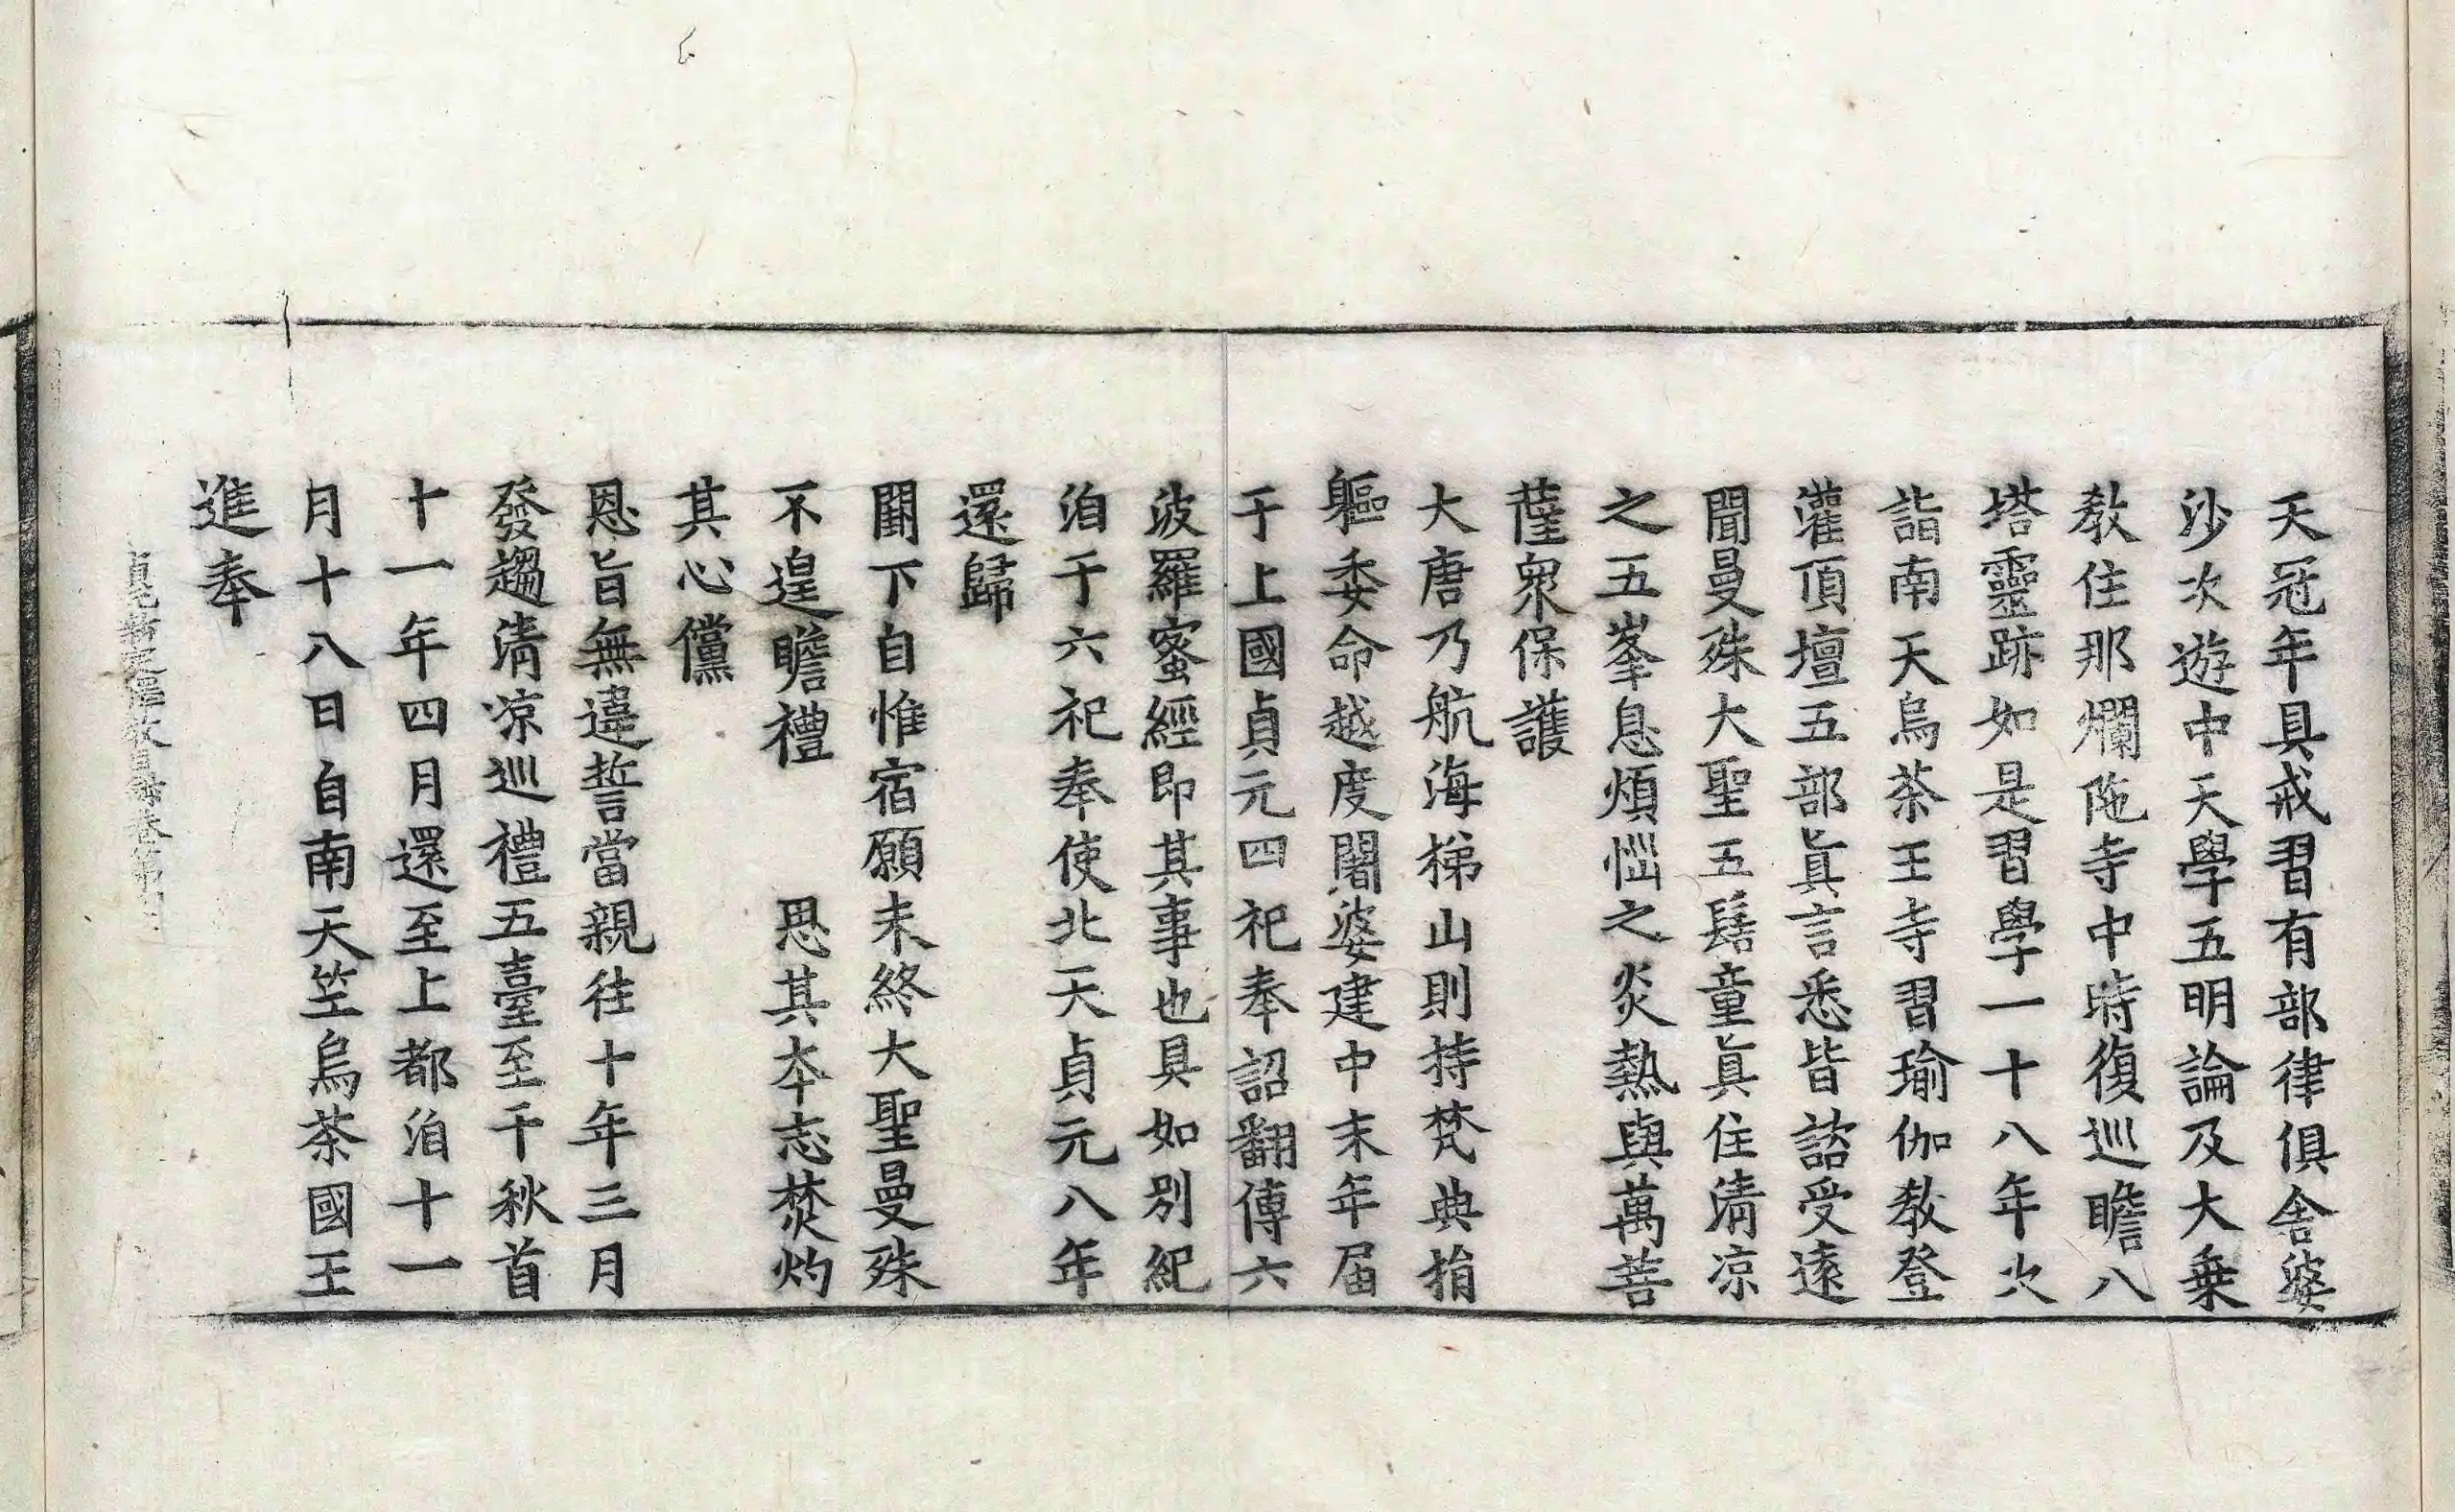 天冠年具戒習有部律俱舍婆
沙次遊中天學五明論及大乗
教住那爛陁寺中時復巡瞻八
塔靈跡如是習學一十八年次
詣南天烏茶王寺習瑜伽教登
灌頂壇五部真言悉皆諮受遠
聞曼殊大聖五髻童真住清凉
之五峯息煩惱之炎熱與萬菩
薩衆保護
大唐乃航海梯山則持梵典捐
軀委命越度闍婆建中末年届
于上國貞元四祀奉詔翻傳六
波羅蜜經即其事也具如別紀
洎于六祀奉使北天貞元八年
還歸
闕下自惟宿願未終大聖曼殊
不遑瞻禮　思其本志焚灼
其心儻
恩旨無違誓當親往十年三月
發趨清凉巡禮五臺至千秋首
十一年四月還至上都洎十一
月十八日自南天竺烏茶國王
進奉
貞元新定釋教目録卷第